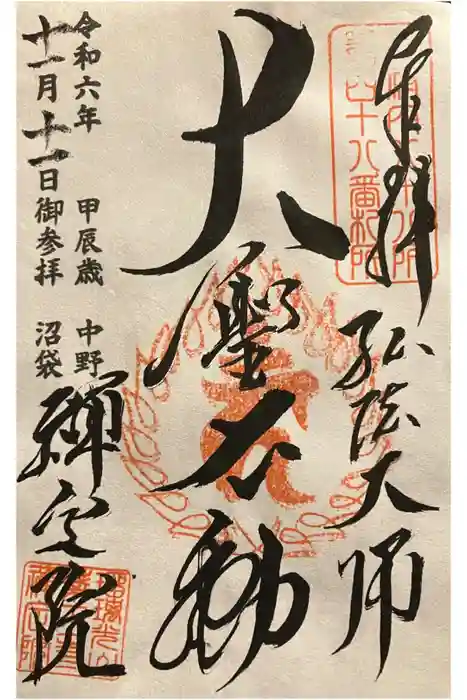 奉拝
弘法大師
大聖不動
令和六年 甲辰歳 中野
十一月十一日御参拝 沼袋
禅定院